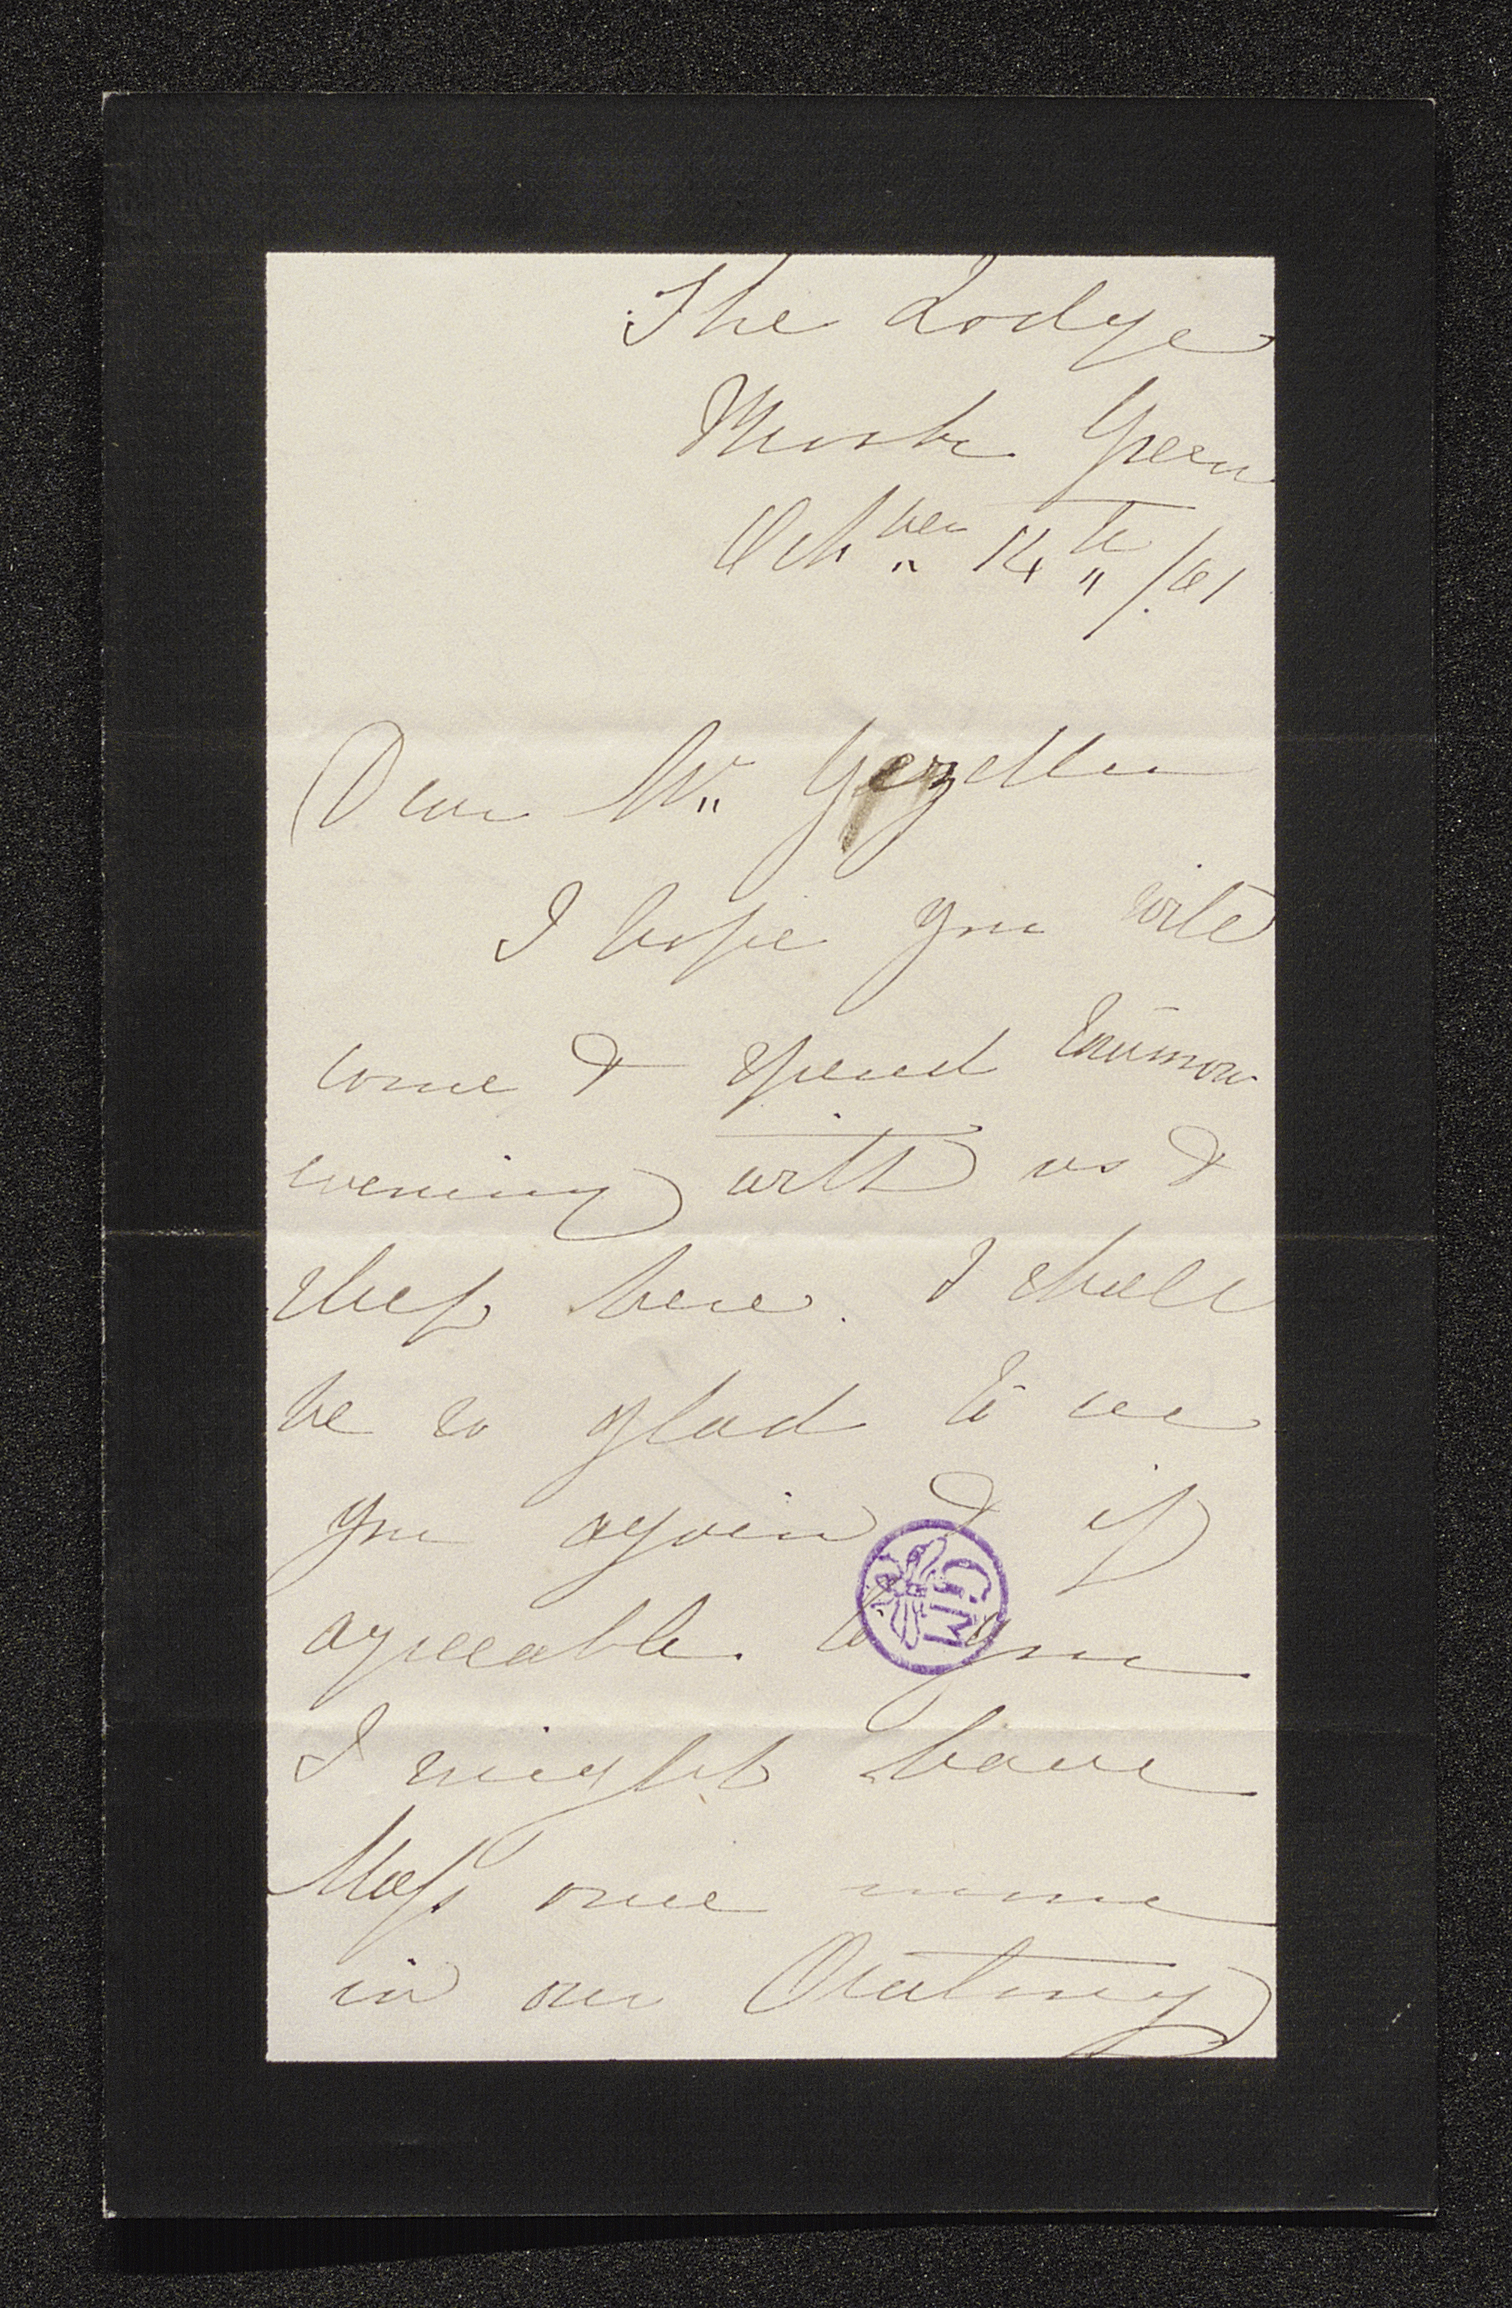 The Lodge
Green
Octber 14th /61
Dear Mr. Gezelle
I hope you will
come & spend tomorrow
evening with us &
sleep here. I shall
be so glad to see
you again & if
agreeable to you
I might have
Mass once more
in our Oratory
GM